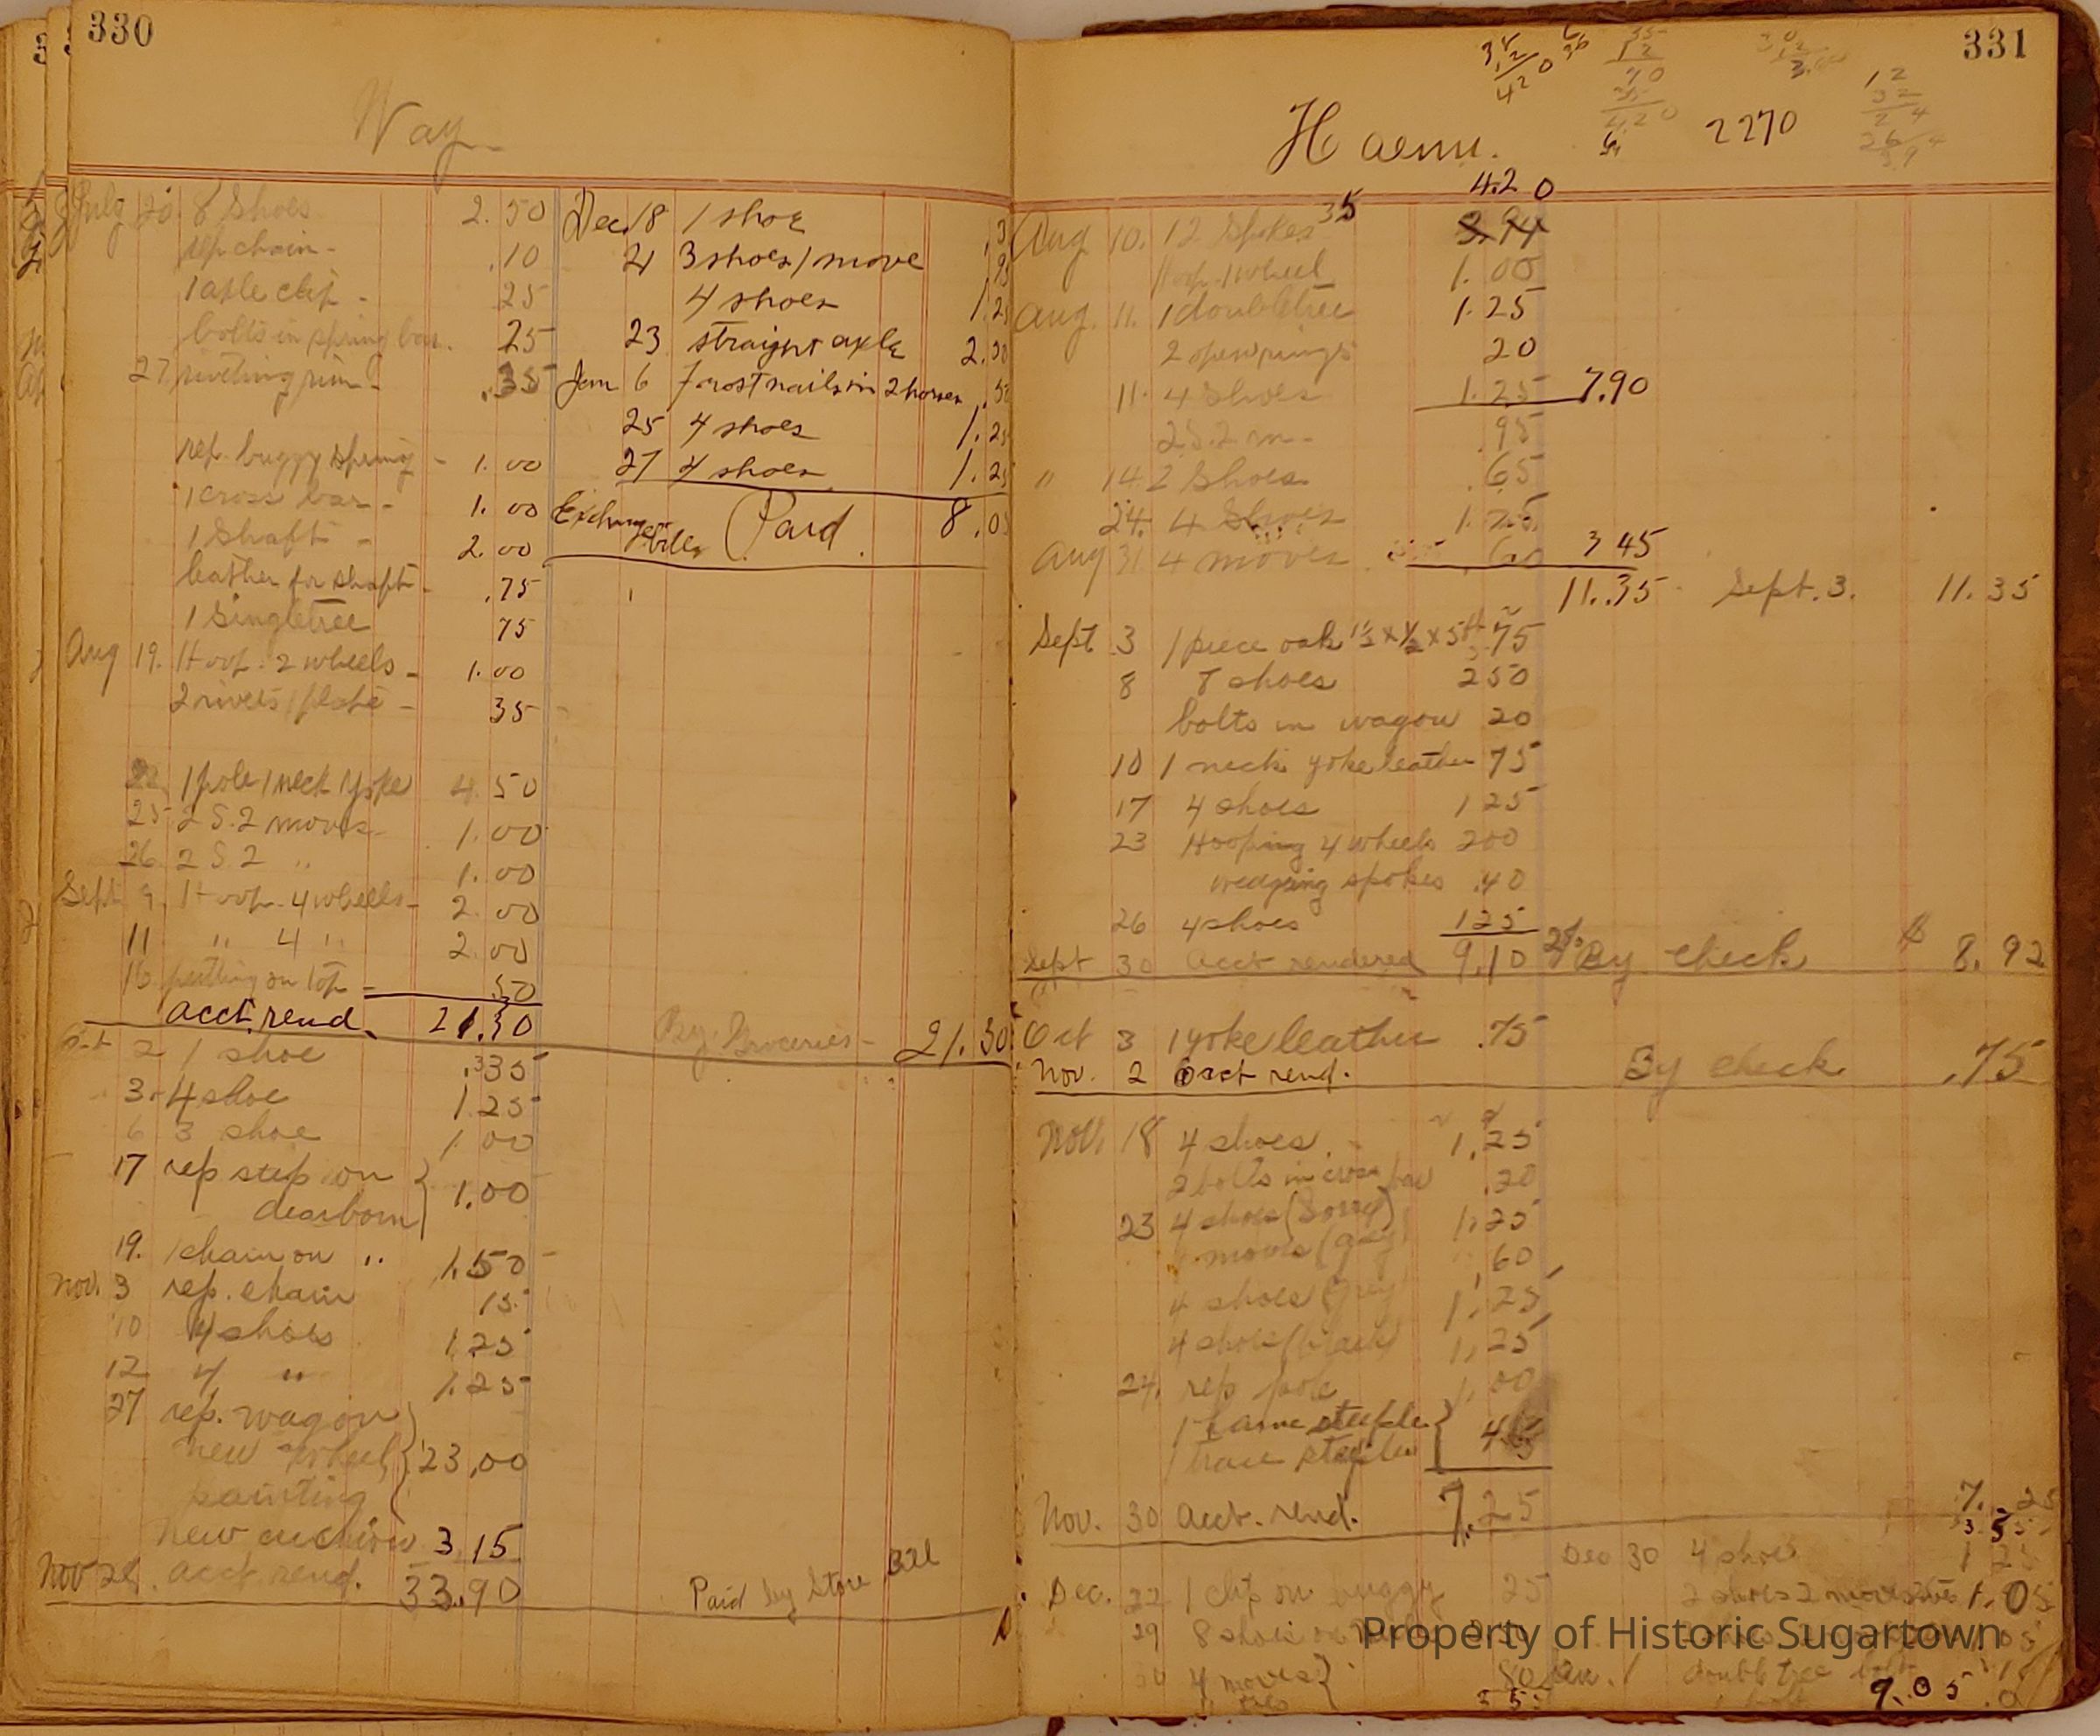 330
Way
July 20 8 Shoes 2.50
rep chain - .10
1 axle clip - 25
bolts in spring bar. 25
27 riveting rim - .35
rep. buggy spring - 1.00
1 cross bar - 1.00
1 Shaft - 2.00
leather for shaft - .75
1 Singletree 75
Aug 19. Hoop. 2 wheels - 1.00
2 rivets 1 plate - 35
22 1 pole 1 neck yoke 4.50
25 2 S. 2 moves - 1.00
26 2 S 2 " 1.00
Sept 9. Hoop. 4 wheels - 2.00
11 " 4 " 2.00
16 putting on top - .50
acct. rend. 21.30
By Groceries - 21.30
2 1 shoe .35
3 - 4 shoe 1.25
6 3 shoe 1.00
17 rep step on
dearborn } 1.00
19. 1 chain on " 1.50
Nov. 3 rep. chain 15
10 4 shoes 1.25
12 4 " 1.25
27 rep. wagon
new wheel
painting } 23.00
new 3.15
Nov 28. acct. rend. 33.90
Paid by Store Bill
Dec. 18 1 shoe .3
21 3 shoes 1 move .95
4 shoes 1.25
23 straight axle 2.00
Jan 6 frost nails in 2 horses .50
25 4 shoes 1.25
27 4 shoes 1.25
Exchange
of bills (Paid. 8.0
331
2270
Haenn.
4.20
Aug 10. 12 Spokes 35 3.94
Hoop. 1 wheel 1.00
Aug. 11. 1 doubletree 1.25
2 open rings 20
11. 4 Shoes 1.25 7.90
2 S. 2 m - .95
" 14 2 Shoes .65
24. 4 Shoes 1.25
Aug 31 4 moves .60 3 45
11.35 Sept. 3. 11.35
Sept 3 1 piece oak 75
8 8 shoes 2 50
bolts in wagon 20
10 1 neck yoke leather 75
17 4 shoes 1 25
23 Hooping 4 wheels 200
wedging spokes .40
26 4 shoes 125
Sept 30 acct rendered 9.10 2% By check $ 8.92
Oct 3 1 yoke leather .75
Nov. 2 acct rend. By check .75
Nov. 18 4 shoes 1.25
2 bolts in cross bar .20
23 4 shoes (Sorrel) 1.25
4 moves (grey) .60
4 shoes (Grey) 1.25
4 shoes (black) 1.25
24. rep pole 1.00
1 hame steeple
1 trace steeple } 45
Nov. 30 acct. rend. 7.25
7.25
Dec 30 4 shoes 1 25
Dec. 22 1 clip on buggy 25
2 shoes 2 moves 1.05
29 8 shoes
4 moves } 80
Jan. 1 doubletree bolt
9.05
Property of Historic Sugartown